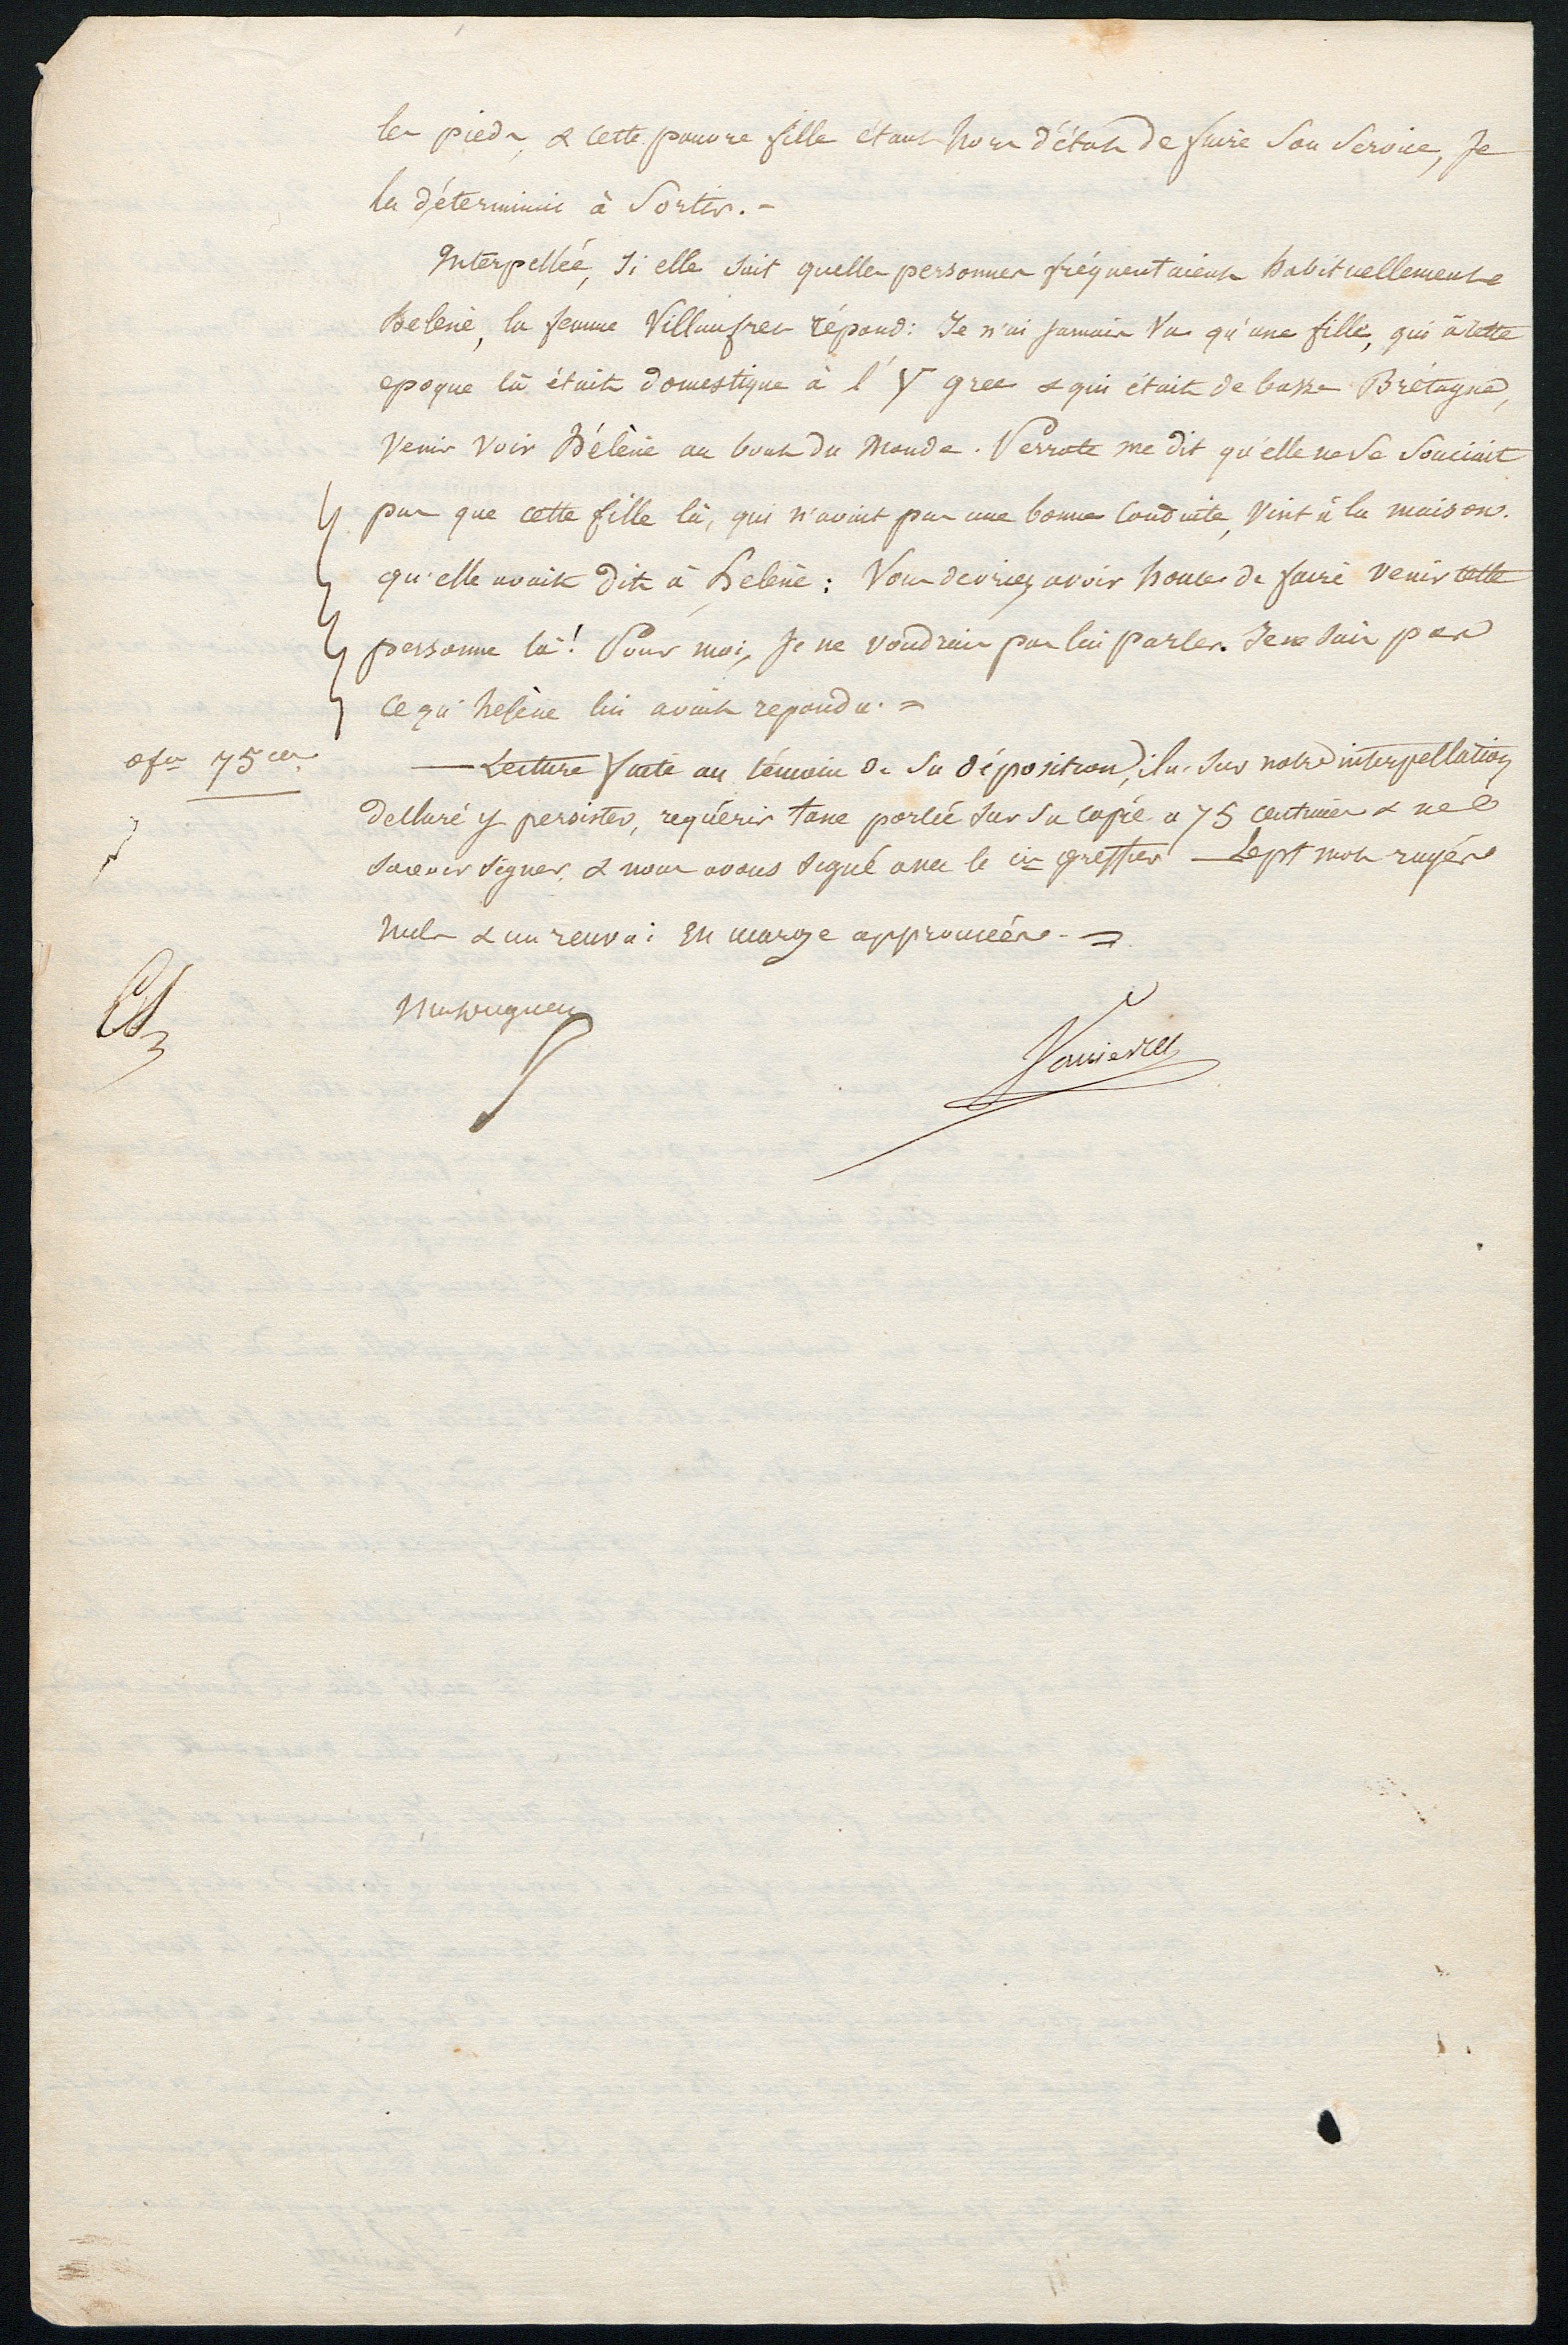 les pieds, & cette pauvre fille étant hors d'état de faire son service, Je
la déterminai à Sortir. -
Interpellée, si elle sait quelles personnes fréquentaient habituellement
helene, la femme Villaufret répond: Je n'ai jamais vu qu'une fille, qui à cette
epoque là était domestique à l'Y grec & qui était de basse Brétagne,
venir voir hélène au bout du Monde. Perrote me dit qu'elle ne se souciait
pas que cette fille là, qui n'avait pas une bonne conduite, vint à la maison.
qu'elle avait dit à helene: Vous devriez avoir honte de faire venir cette
personne là! Pour moi, je ne voudrais pas lui parler. Je ne sais pas
ce qu'helène lui avait repondu. =
0 fr 75 ces
— Lecture faite au témoin de sa déposition, il a sur notre interpellation
declaré y persister, requérir taxe portée sur sa copie à 75 centimes & ne
savoir signer, & nous avons signé avec le cis greffier — Sept mots rayés
nuls & un renvoi en marge approuvés - =
Vannier